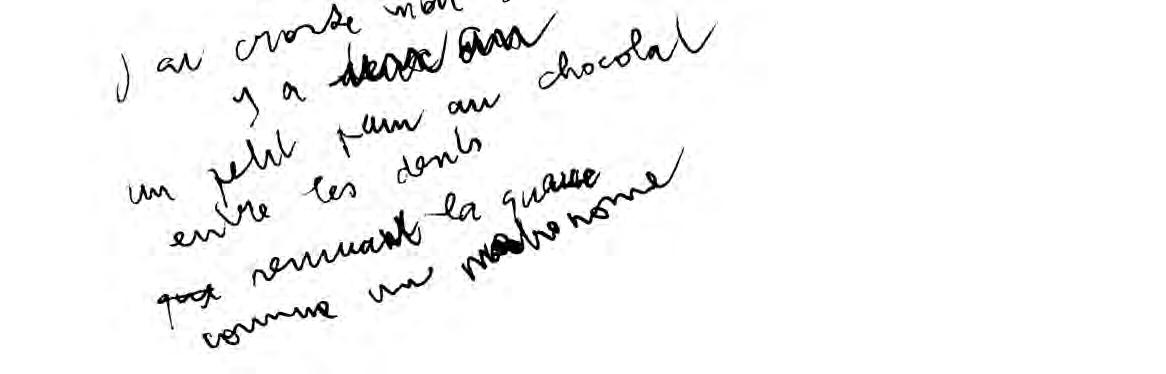 j'ai croisé mon
y a deux ans
un petit pain au chocolat
entre les dents
remuant la queue
comme un métronome